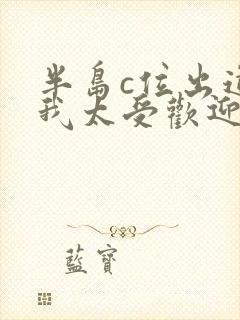 半島c位出道
我太受歡迎
藍寶